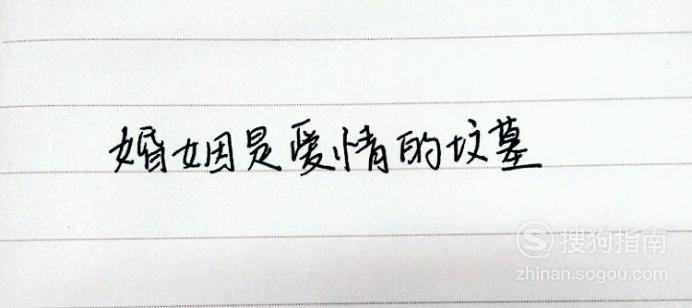 婚姻是爱情的坟墓
搜狗指南
zhinan.sogou.com